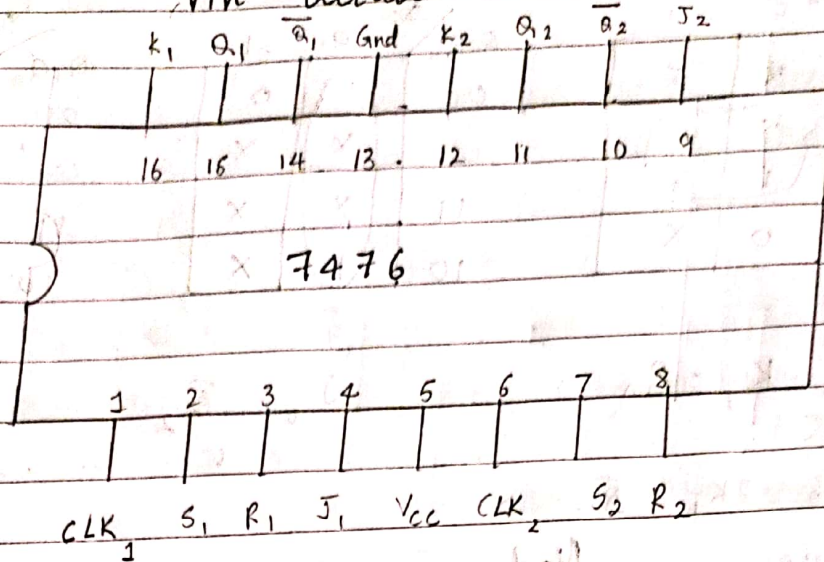 K₁ Q₁ Q̅₁ Gnd K₂ Q₂ Q̅₂ J₂
16 15 14 13 12 11 10 9
7476
1 2 3 4 5 6 7 8
CLK₁ S₁ R₁ J₁ Vcc CLK₂ S₂ R₂